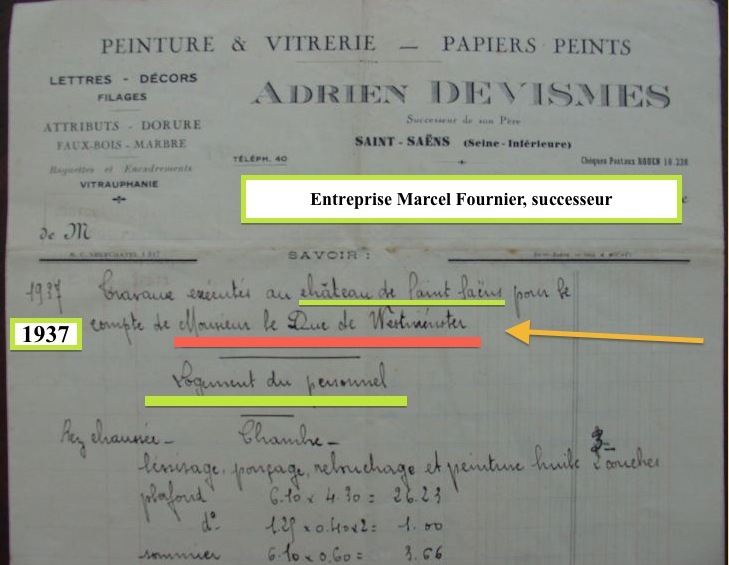 PEINTURE & VITRERIE — PAPIERS PEINTS
LETTRES - DÉCORS
FILAGES
ATTRIBUTS - DORURE
FAUX-BOIS - MARBRE
Baguettes et Encadrements
VITRAUPHANIE
ADRIEN DEVISMES
Successeur de son Père
SAINT-SAËNS (Seine-Inférieure)
TÉLÉPH. 40
Chèques Postaux ROUEN 10.236
Entreprise Marcel Fournier, successeur
de M
R. C. NEUFCHATEL 1 217
SAVOIR :
1937 Travaux exécutés au château de Saint Saëns pour le
1937
compte de Monsieur le Duc de Westminster
Logement du personnel
Rez chaussée - Chambre -
lessivage, ponçage, rebouchage et peinture huile 3 couches
plafond 6.10 x 4.30 = 26.23
d° 1.25 x 0.40 x 2 = 1.00
sommier 6.10 x 0.60 = 3.66